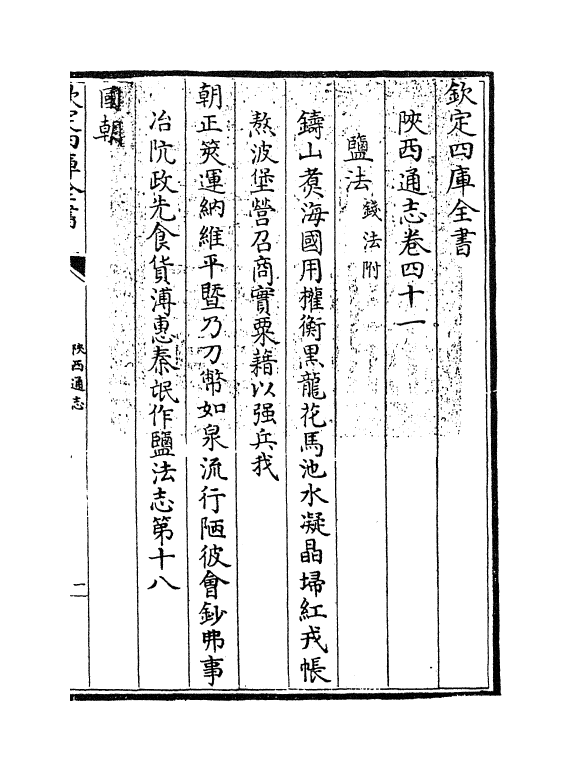 欽定四庫全書
陜西通志卷四十一
鹽法錢法附
鑄山煑海國用權衡黒龍花馬池水凝晶埽紅戎帳
熬波堡營召商實粟藉以强兵我
朝正筴運納維平曁乃刀幣如泉流行陋彼會鈔弗事
冶阬政先食貨溥惠秦氓作鹽法志第十八
國朝
欽定四庫全書
陜西通志
二